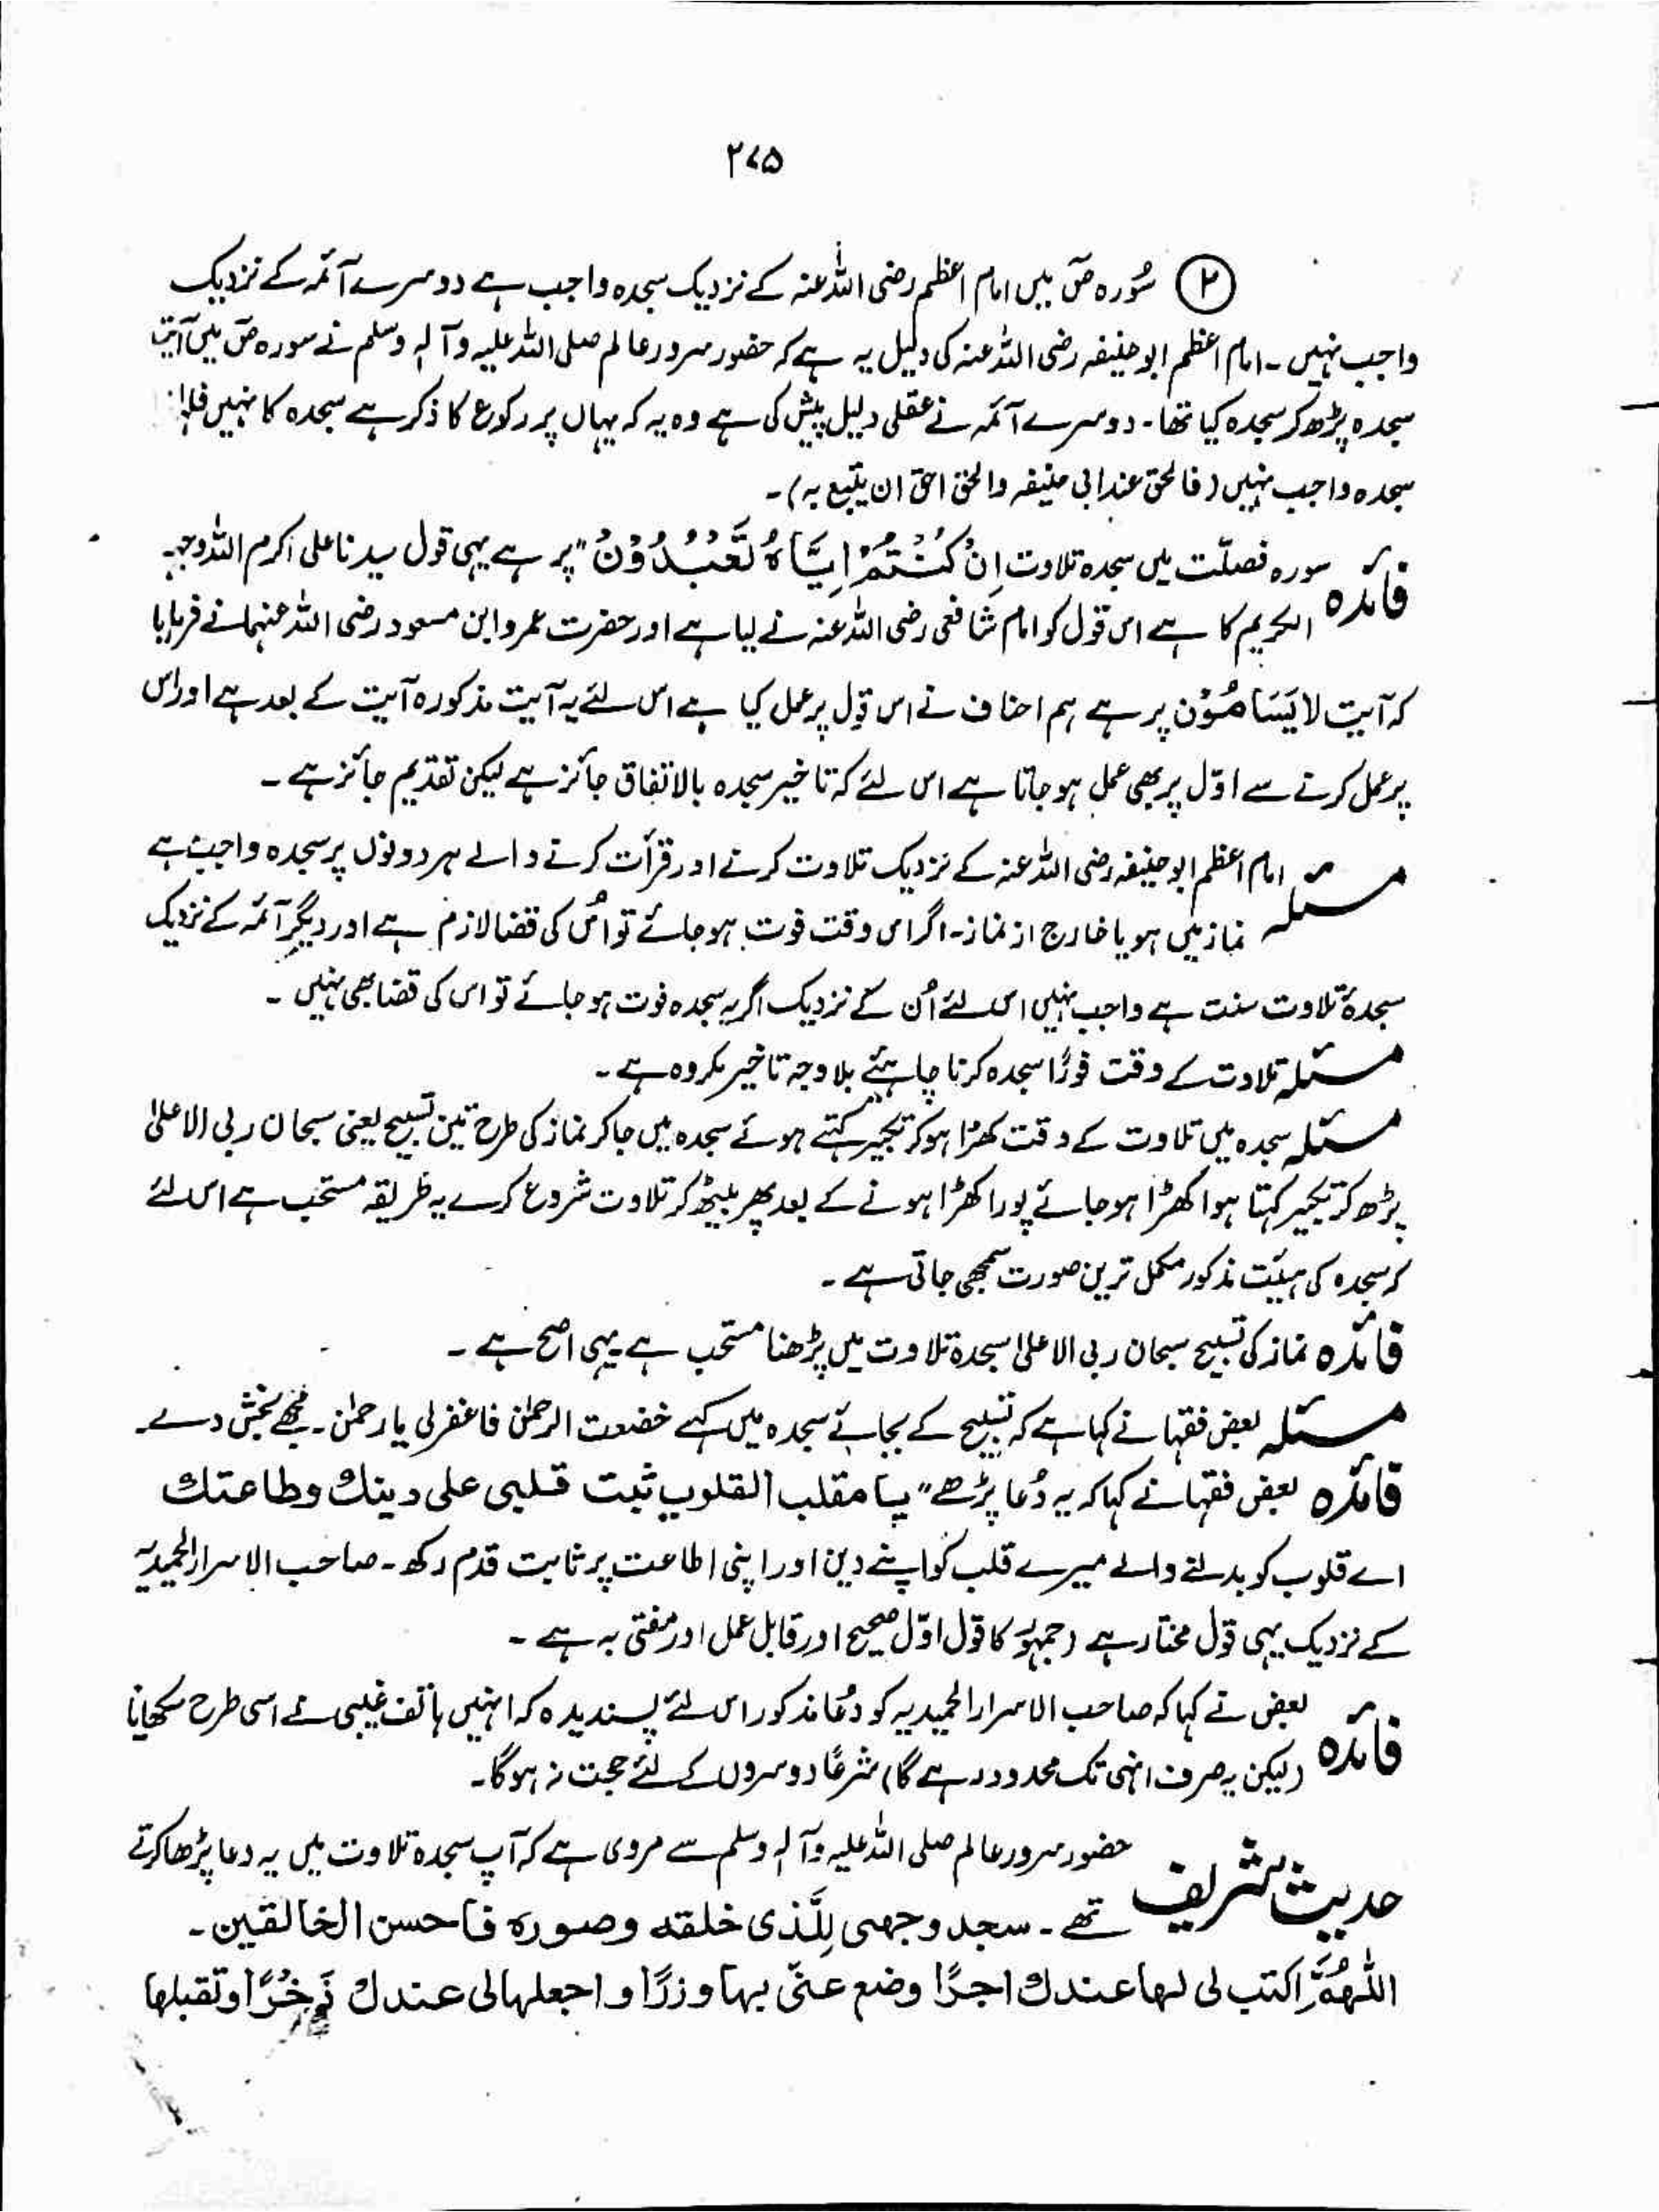 ۲۷۵
② سُورہ صٓ میں امام اعظم رضی اللہ عنہ کے نزدیک سجدہ واجب ہے دوسرے آئمہ کے نزدیک
واجب نہیں ۔ امام اعظم ابوحنیفہ رضی اللہ عنہ کی دلیل یہ ہے کہ حضور سرور عالم صلی اللہ علیہ وآلہٖ وسلم نے سورہ صٓ میں آیت
سجدہ پڑھ کر سجدہ کیا تھا ۔ دوسرے آئمہ نے عقلی دلیل پیش کی ہے وہ یہ کہ یہاں پر رکوع کا ذکر ہے سجدہ کا نہیں فلہٰذا
سجدہ واجب نہیں (فالحق عند ابی حنیفہ والحق احق ان یتبع بہ) ۔
فائدہ سورہ فصلّت میں سجدہ تلاوت اِنْ كُنْتُمْ اِيَّاهُ تَعْبُدُوْنَ" پر ہے یہی قول سیدنا علی اکرم اللہ وجہہ
الکریم کا ہے اس قول کو امام شافعی رضی اللہ عنہ نے لیا ہے اور حضرت عمر وابن مسعود رضی اللہ عنہما نے فرمایا
کہ آیت لا یَسَامُوْن پر ہے ہم احناف نے اس قول پر عمل کیا ہے اس لئے یہ آیت مذکورہ آیت کے بعد ہے اور اس
پر عمل کرنے سے اوّل پر بھی عمل ہو جاتا ہے اس لئے کہ تاخیر سجدہ بالاتفاق جائز ہے لیکن تقدیم جائز ہے ۔
مسئلہ امام اعظم ابوحنیفہ رضی اللہ عنہ کے نزدیک تلاوت کرنے اور قرأت کرنے والے ہر دونوں پر سجدہ واجب ہے
نماز میں ہو یا خارج از نماز ۔ اگر اس وقت فوت ہو جائے تو اُس کی قضا لازم ہے اور دیگر آئمہ کے نزدیک
سجدۂ تلاوت سنت ہے واجب نہیں اس لئے اُن کے نزدیک اگر یہ سجدہ فوت ہو جائے تو اس کی قضا بھی نہیں ۔
مسئلہ تلاوت کے وقت فورًا سجدہ کرنا چاہئے بلا وجہ تاخیر مکروہ ہے ۔
مسئلہ سجدہ میں تلاوت کے وقت کھڑا ہو کر تکبیر کہتے ہوئے سجدہ میں جا کر نماز کی طرح تین تسبیح یعنی سبحان ربی الاعلیٰ
پڑھ کر تکبیر کہتا ہوا کھڑا ہو جائے پورا کھڑا ہونے کے بعد پھر بیٹھ کر تلاوت شروع کرے یہ طریقہ مستحب ہے اس لئے
کہ سجدہ کی ہیئت مذکور مکمل ترین صورت سمجھی جاتی ہے ۔
فائدہ نماز کی تسبیح سبحان ربی الاعلیٰ سجدۃ تلاوت میں پڑھنا مستحب ہے یہی اصح ہے ۔
مسئلہ بعض فقہا نے کہا ہے کہ تسبیح کے بجائے سجدہ میں کہے خضعت الرحمٰن فاغفرلی یا رحمٰن ۔ مجھے بخش دے۔
فائدہ بعض فقہا نے کہا کہ یہ دُعا پڑھے" یا مقلب القلوب ثبت قلبی علی دینك وطاعتك
اے قلوب کو بدلنے والے میرے قلب کو اپنے دین اور اپنی اطاعت پر ثابت قدم رکھ ۔ صاحب الاسرار الحمیدیہ
کے نزدیک یہی قول مختار ہے (جمہور کا قول اوّل صحیح اور قابل عمل اور مفتی بہ ہے ۔
فائدہ بعض نے کہا کہ صاحب الاسرار الحمیدیہ کو دُعا مذکور اس لئے پسندیدہ کہ انہیں ہاتف غیبی نے اسی طرح سکھایا
(لیکن یہ صرف انہی تک محدود رہے گا) شرعًا دوسروں کے لئے حجت نہ ہوگا ۔
حدیث شریف حضور سرور عالم صلی اللہ علیہ وآلہٖ وسلم سے مروی ہے کہ آپ سجدہ تلاوت میں یہ دعا پڑھا کرتے
تھے ۔ سجد وجھی لِلَّذی خلقه وصوره فاحسن الخالقین ۔
اللّٰهُمَّ اکتب لی لها عندك اجرًا وضع عنّی بها وزرًا واجعلها لی عندك ذخرًا وتقبلها